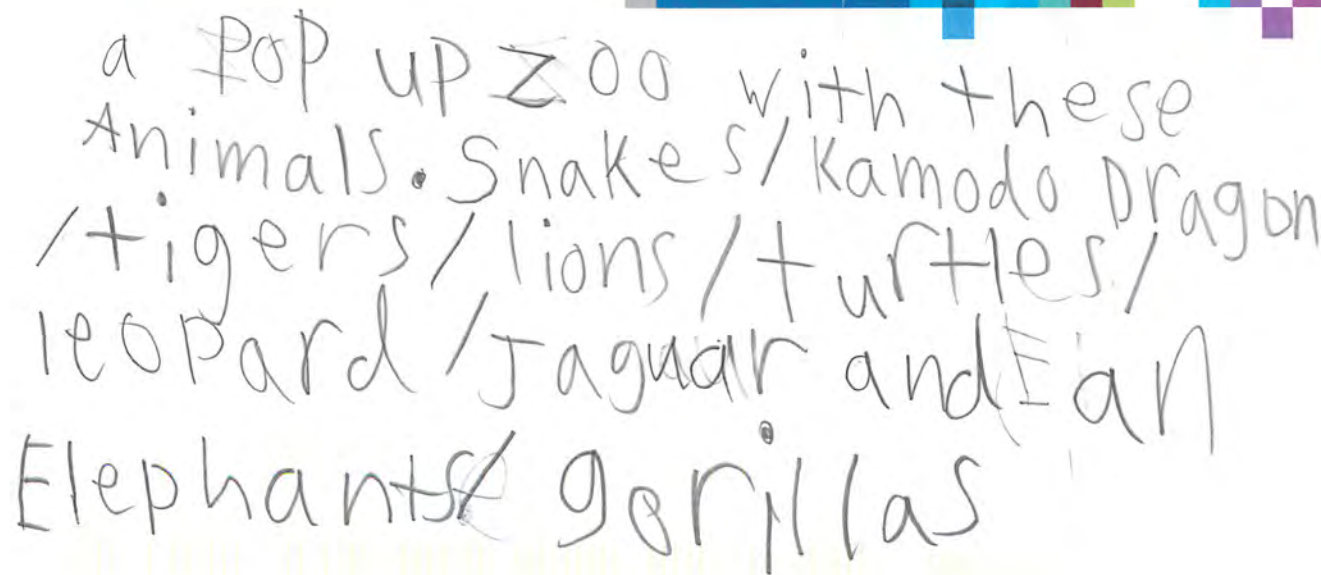 a POP up ZOO with these
Animals. Snakes/Kamodo Dragon
/tigers/lions/turtles/
leopard/Jaguar and an
Elephants/ gorillas